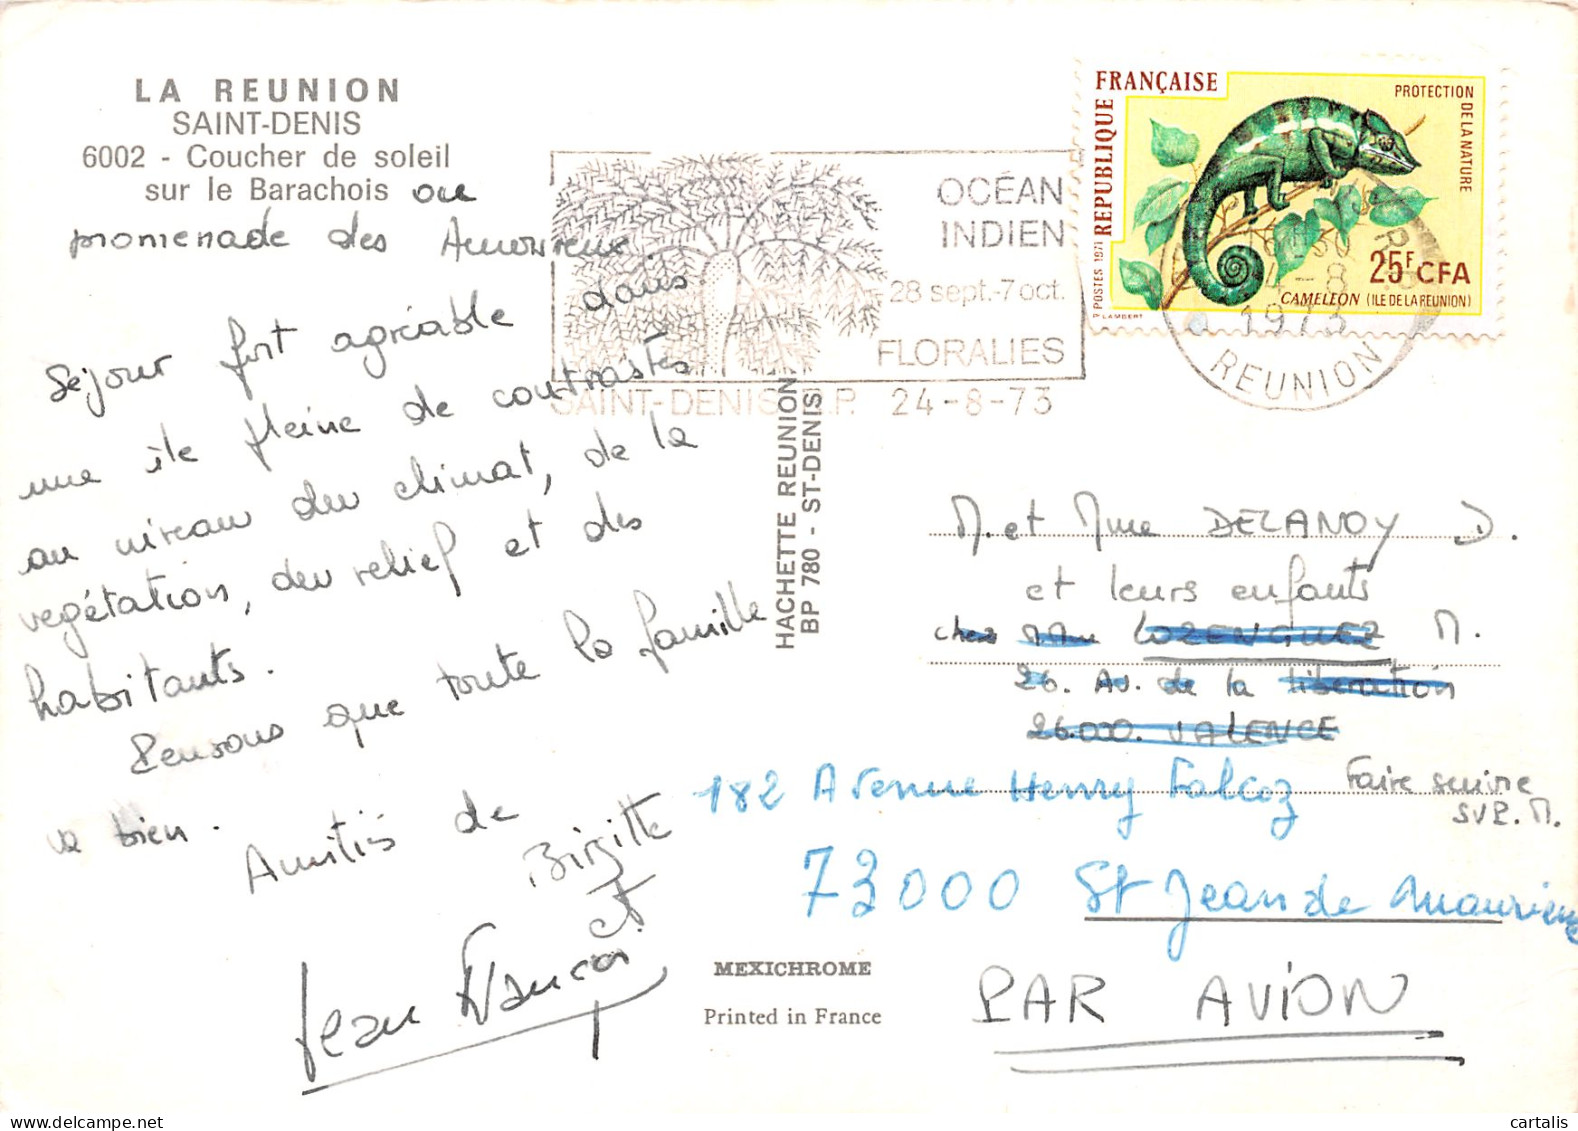 LA REUNION
SAINT-DENIS
6002 - Coucher de soleil
sur le Barachois ou
promenade des Amoureux.
Séjour fort agréable dans
une île pleine de contrastes
au niveau du climat, de la
végétation, du relief et des
habitants.
Pensons que toute la famille
va bien.
Amitiés de
Birgitte
et
Jean François
OCÉAN
INDIEN
28 sept.-7 oct.
FLORALIES
SAINT-DENIS R.P. 24-8-73
RÉPUBLIQUE FRANÇAISE
PROTECTION DE LA NATURE
POSTES 1971
25F CFA
CAMELEON (ILE DE LA REUNION)
P. LAMBERT
1973
REUNION
HACHETTE REUNION
BP 780 - ST-DENIS
M. et Mme DELANOY D.
et leurs enfants
chez M.Mme LOZENGUEZ M.
26. Av. de la libération
26.000. VALENCE
Faire suivre
SVP. M.
182 Avenue Henry Falcoz
73000 St Jean de Maurienne
MEXICHROME
Printed in France
PAR AVION
cartalis